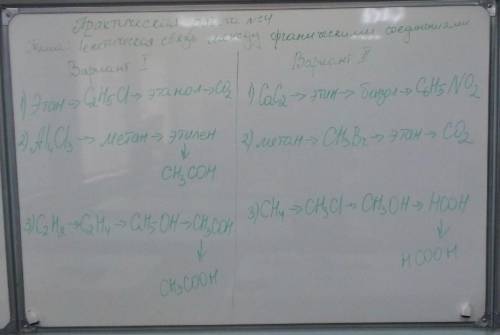 Практическая работа №24
Тема: Генетическая связь между органическими соединениями
Вариант I
1) Этан → C2H5Cl → этанол → CO2
2) Al4C3 → метан → этилен
↓
CH3COH
3) C2H2 → C2H4 → C2H5OH → CH3COH
↓
CH3COOH
Вариант II
1) CaC2 → этин → бензол → C6H5NO2
2) метан → CH3Br → этан → CO2
3) CH4 → CH3Cl → CH3OH → HCOH
↓
HCOOH